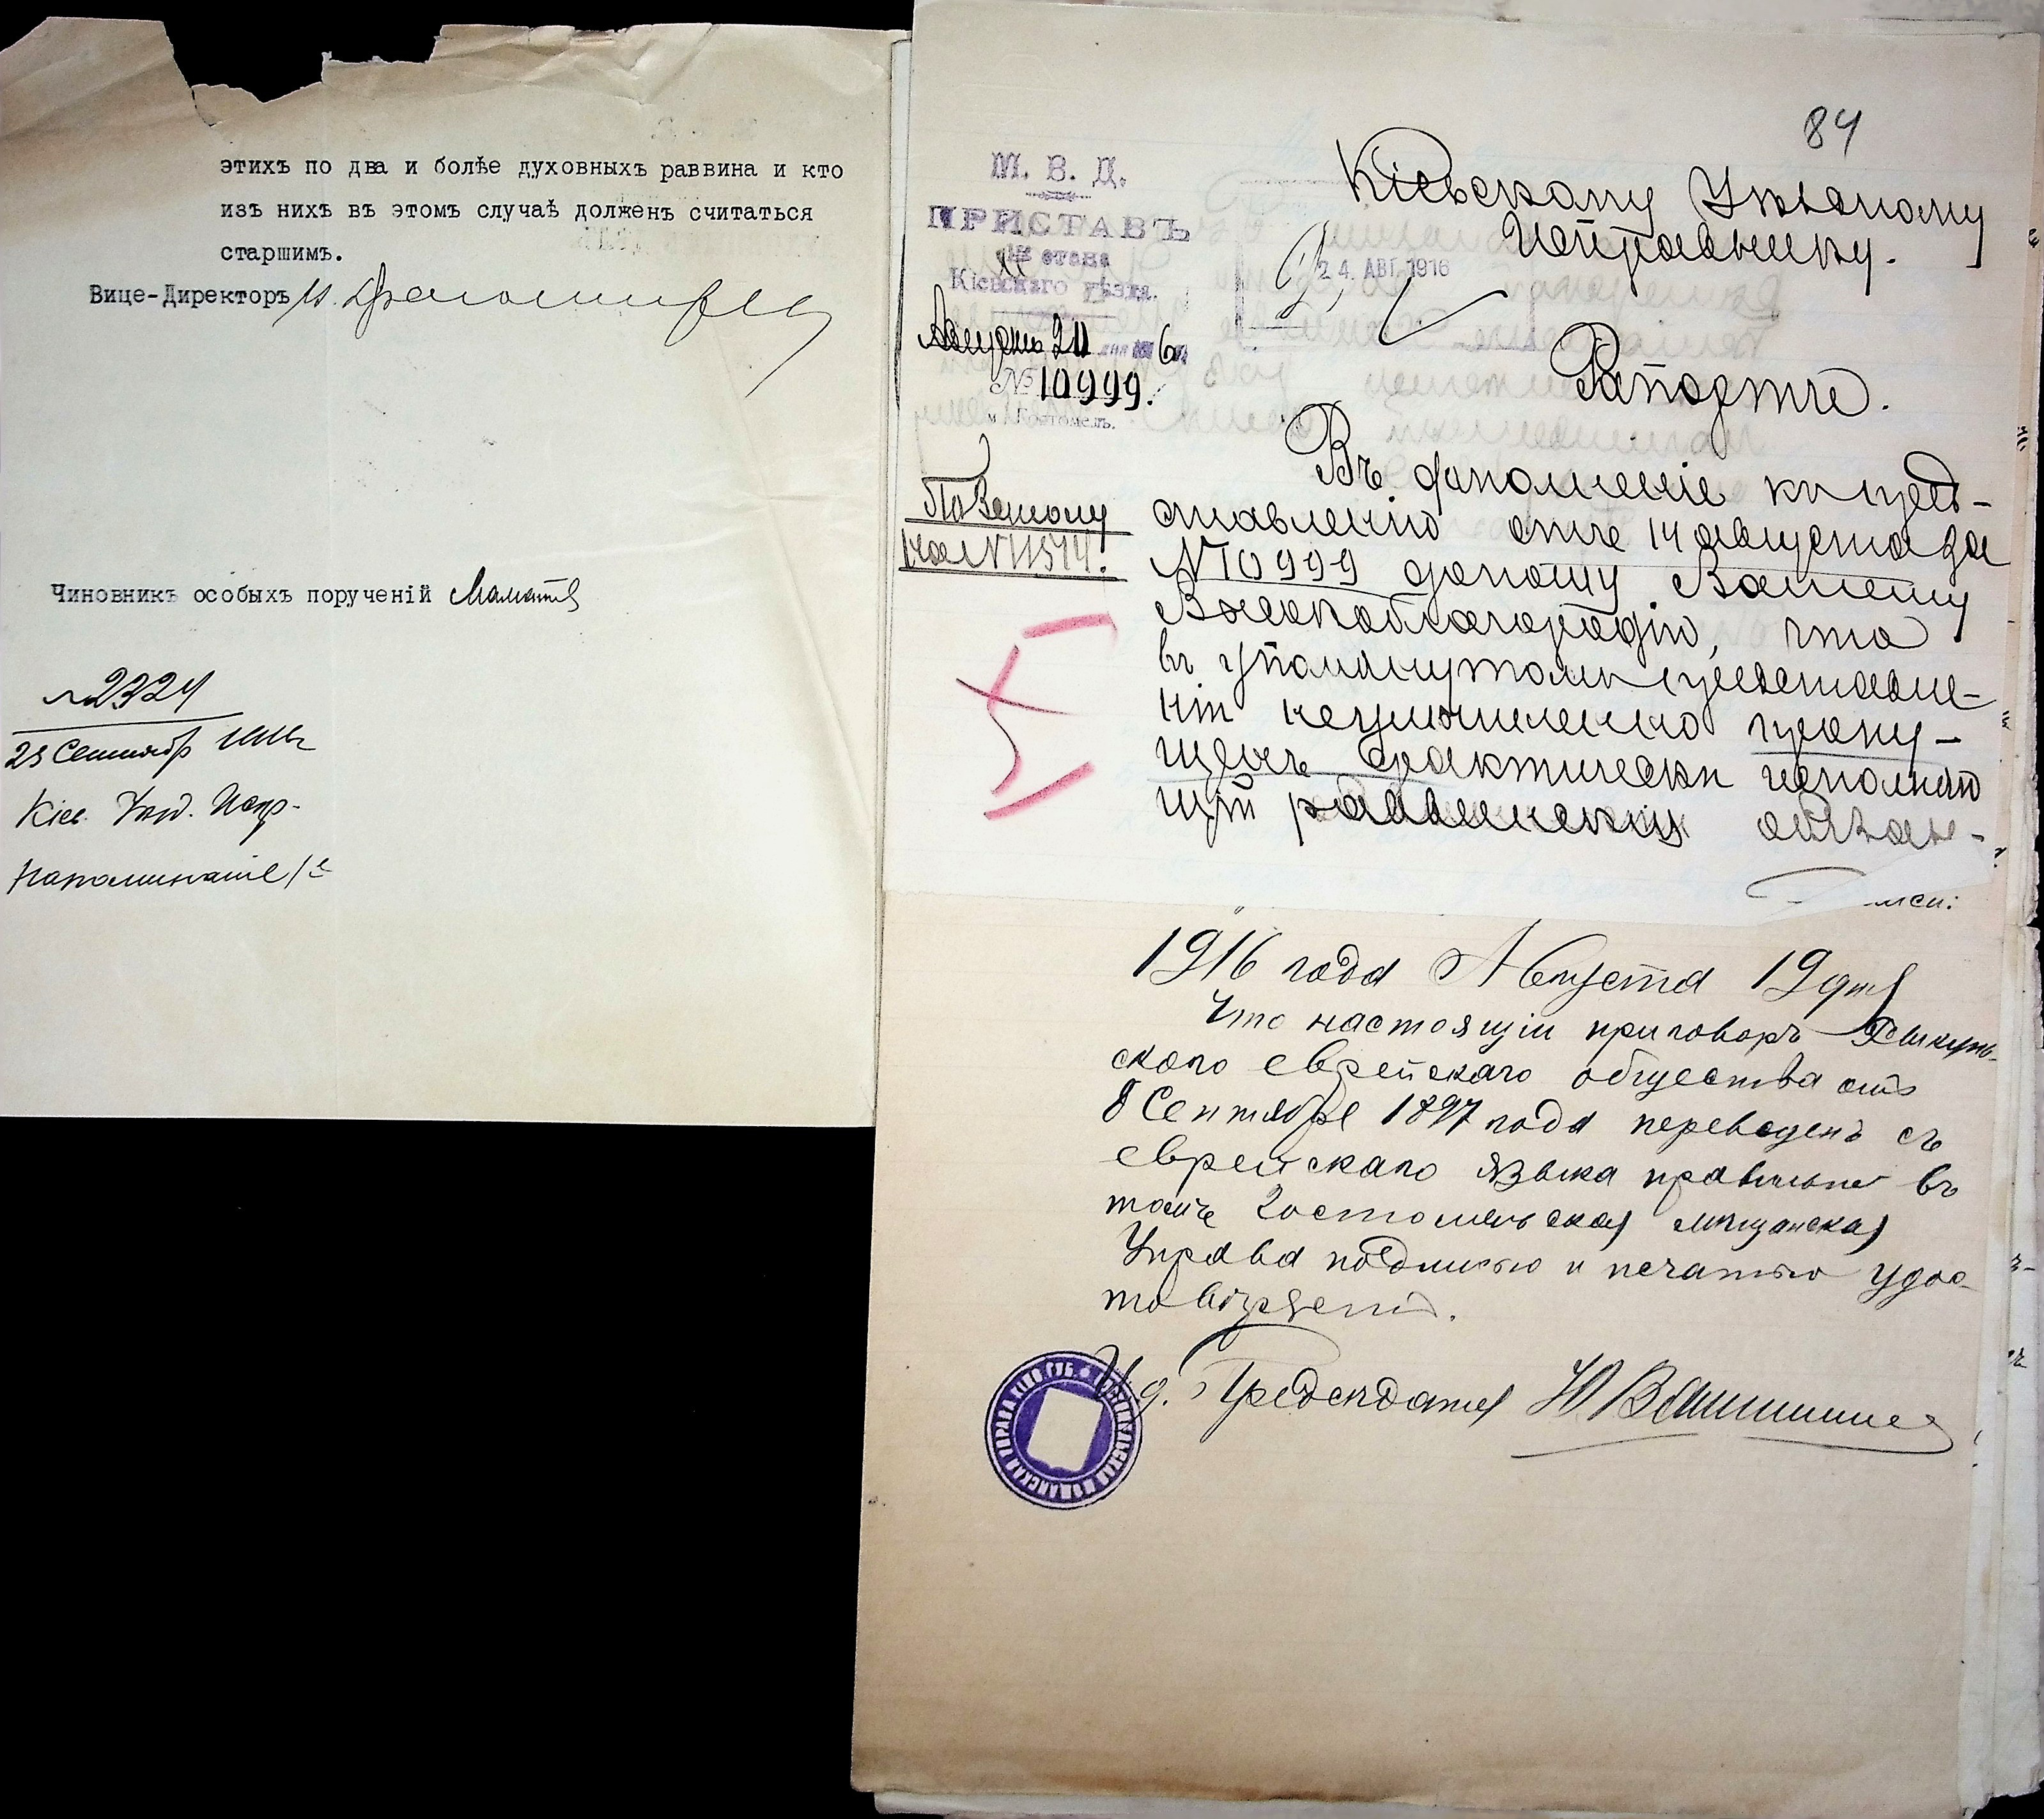 этихъ по два и болѣе духовныхъ раввина и кто
изъ нихъ въ этомъ случаѣ долженъ считаться
старшимъ.
Вице-Директоръ
Чиновникъ особыхъ порученій
№2324
Кіев. Уѣзд. Испр.
84
М. В. Д.
ПРИСТАВЪ
стана
Кіевскаго уѣзда.
Августа
№ 10999.
м. Гостомель.
По Вашему
на №11514.
Кіевскому Уѣздному
Исправнику.
24. АВГ. 1916
Рапортъ.
Въ дополненіе къ пред-
ставленію отъ 14 августа за
№10999 доношу Вашему
Высокоблагородію, что
въ упомянутомъ представле-
ніи неумышленно пропу-
щенъ фактически исполняю
щій раввинскія обязан-
1916 года Августа 19 дня
Что настоящій приговоръ
скаго еврейскаго общества отъ
8 Сентября 1897 года переведенъ съ
еврейскаго языка правильно въ
томъ Гостомельская мѣщанская
Управа подписью и печатью удос-
товѣряетъ.
И. д. Предсѣдателя
ГОСТОМЕЛЬСКАЯ МѢЩАНСКАЯ УПРАВА КІЕВ. ГУБ.